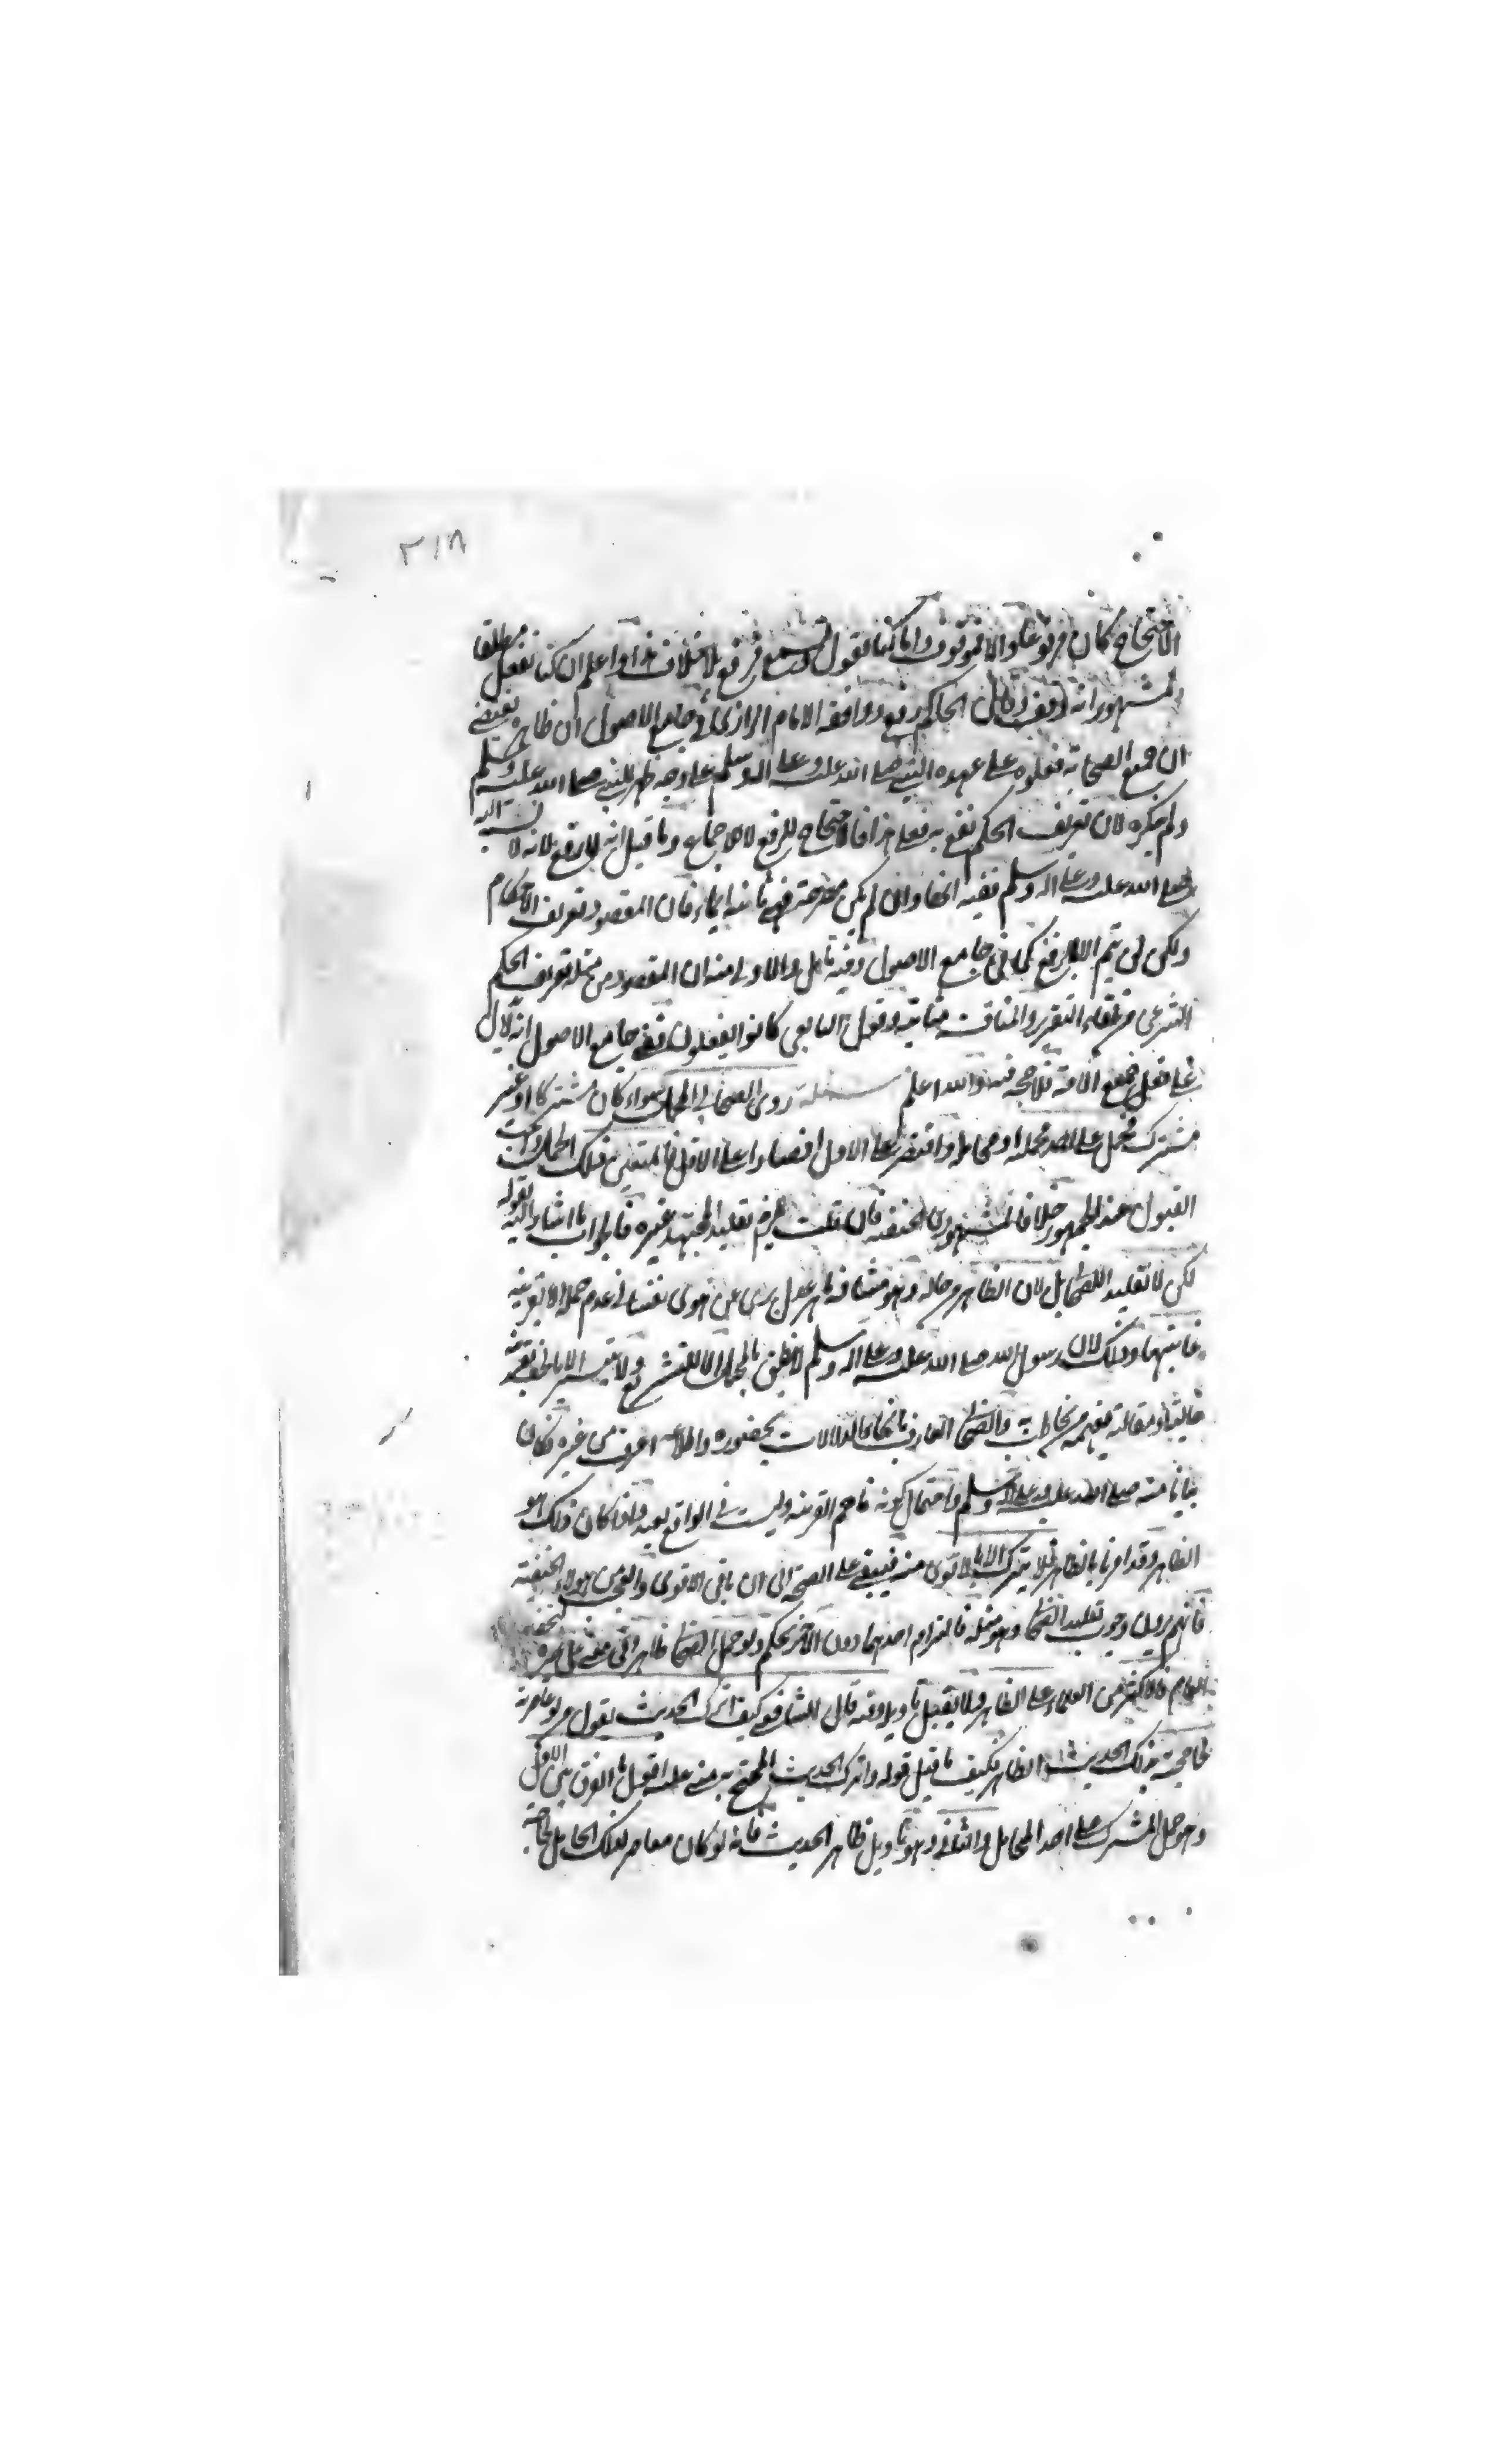 ٣١٨
الاحتجاج كان مرفوعا والا فموقوف واما كنا نقول فرفع بلا خلاف هذا واعلم ان كنا نفعل مطلقا
المشهور انه وقف وقال الحاكم رفع ووافقه الامام الرازي في جامع الاصول ان ظاهره يقتضي
ان جميع الصحابة فعلوه على عهده النبي صلى الله عليه وعلى اله وسلم على وجه ظهر للنبي صلى الله عليه وسلم
ولم ينكره لان تعريف الحكم يقع به فعلى هذا فالاحتجاج للرفع لا للاجماع وما قيل انه لا يرفع لانه لا نسبة اليه
صلى الله عليه وعلى اله وسلم ففيه انها وان لم يكن صريحة فهي ثابتة ايماء فان المقصود تعريف الاحكام
ولكن لن يتم الا بالرفع كما في جامع الاصول وفيه تامل والاولى منه ان المقصود من مثله تعريف الحكم
الشرعي وقول التابعي كانوا يفعلون ففي جامع الاصول انه لا يدل
على فعل جميع الامة فلا حجة فيه والله اعلم مسئلة روى الصحابي المجمل سواء كان مشتركا او غير
مشترك فحمل على احد محمليه او محامله واقتصر على الاول اقتصارا على الاقل المتيقن فذلك الحمل واجب
القبول عند الجمهور خلافا لمشهوري الحنفية فان قلت يلزم تقليد المجتهد غيره فالجواب ما اشار اليه بقوله
لكن لا تقليدا للصحابي بل لان الظاهر من حاله وهو مشافه ماهر عدل بري عن هوى نفسه في عدم حمله الا بقرينة
عاينها وذلك لان رسول الله صلى الله عليه وعلى اله وسلم لا ينطق بالمجمل الا للتشريع ولا تيسير الا بقرينة
حالية او مقالية مفهمة من يخاطب به والصحابي العارف بانحاء الدلالات بحضوره واطلاعه اعرف من غيره فكان
بيانا منه صلى الله عليه وعلى اله وسلم واحتمال كونه فاهم القرينة وليست في الواقع بعيد واذا كان ذلك هو
الظاهر وقد امرنا بالظاهر فلا يترك الا بالاقوى منه فيبقى على الصحة الى ان ياتي الاقوى والعجب من هولاء الحنفية
فانهم يرون وجوب تقليد الصحابي وهو مثله فالتزام احدهما دون الاخر تحكم ولو حمل الصحابي ظاهرا على غيره كتخصيص
العام فالاكثر من العلماء على الظاهر ولا يقبل تاويله وفيه قال الشافعي كيف اترك الحديث بقول من لو عاصرته
لحاججته بذلك الحديث الظاهر فكيف ما قيل قوله واترك الحديث المحتج به مني عليه اقول ما الفرق بين الاول
وهو حمل المشترك على احد المحامل والثاني وهو تاويل ظاهر الحديث فانه لو كان معاصر لذلك الحامل لحاجه